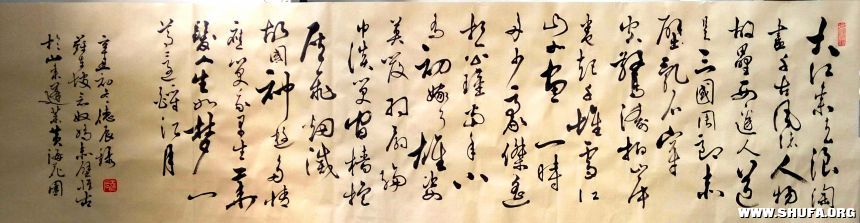 大江东去浪淘
尽千古风流人物
故垒西边人道
是三国周郎赤
壁乱石穿
空惊涛拍岸
卷起千堆雪江
山如画一时
多少豪杰遥
想公瑾当年小
乔初嫁了雄姿
英发羽扇纶
巾谈笑间樯橹
灰飞烟灭
故国神游多情
应笑我早生华
发人生如梦一
尊还酹江月
辛丑初冬德辰录
苏东坡念奴娇赤壁怀古
於山东蓬莱黄海花园
WWW.SHUFA.ORG